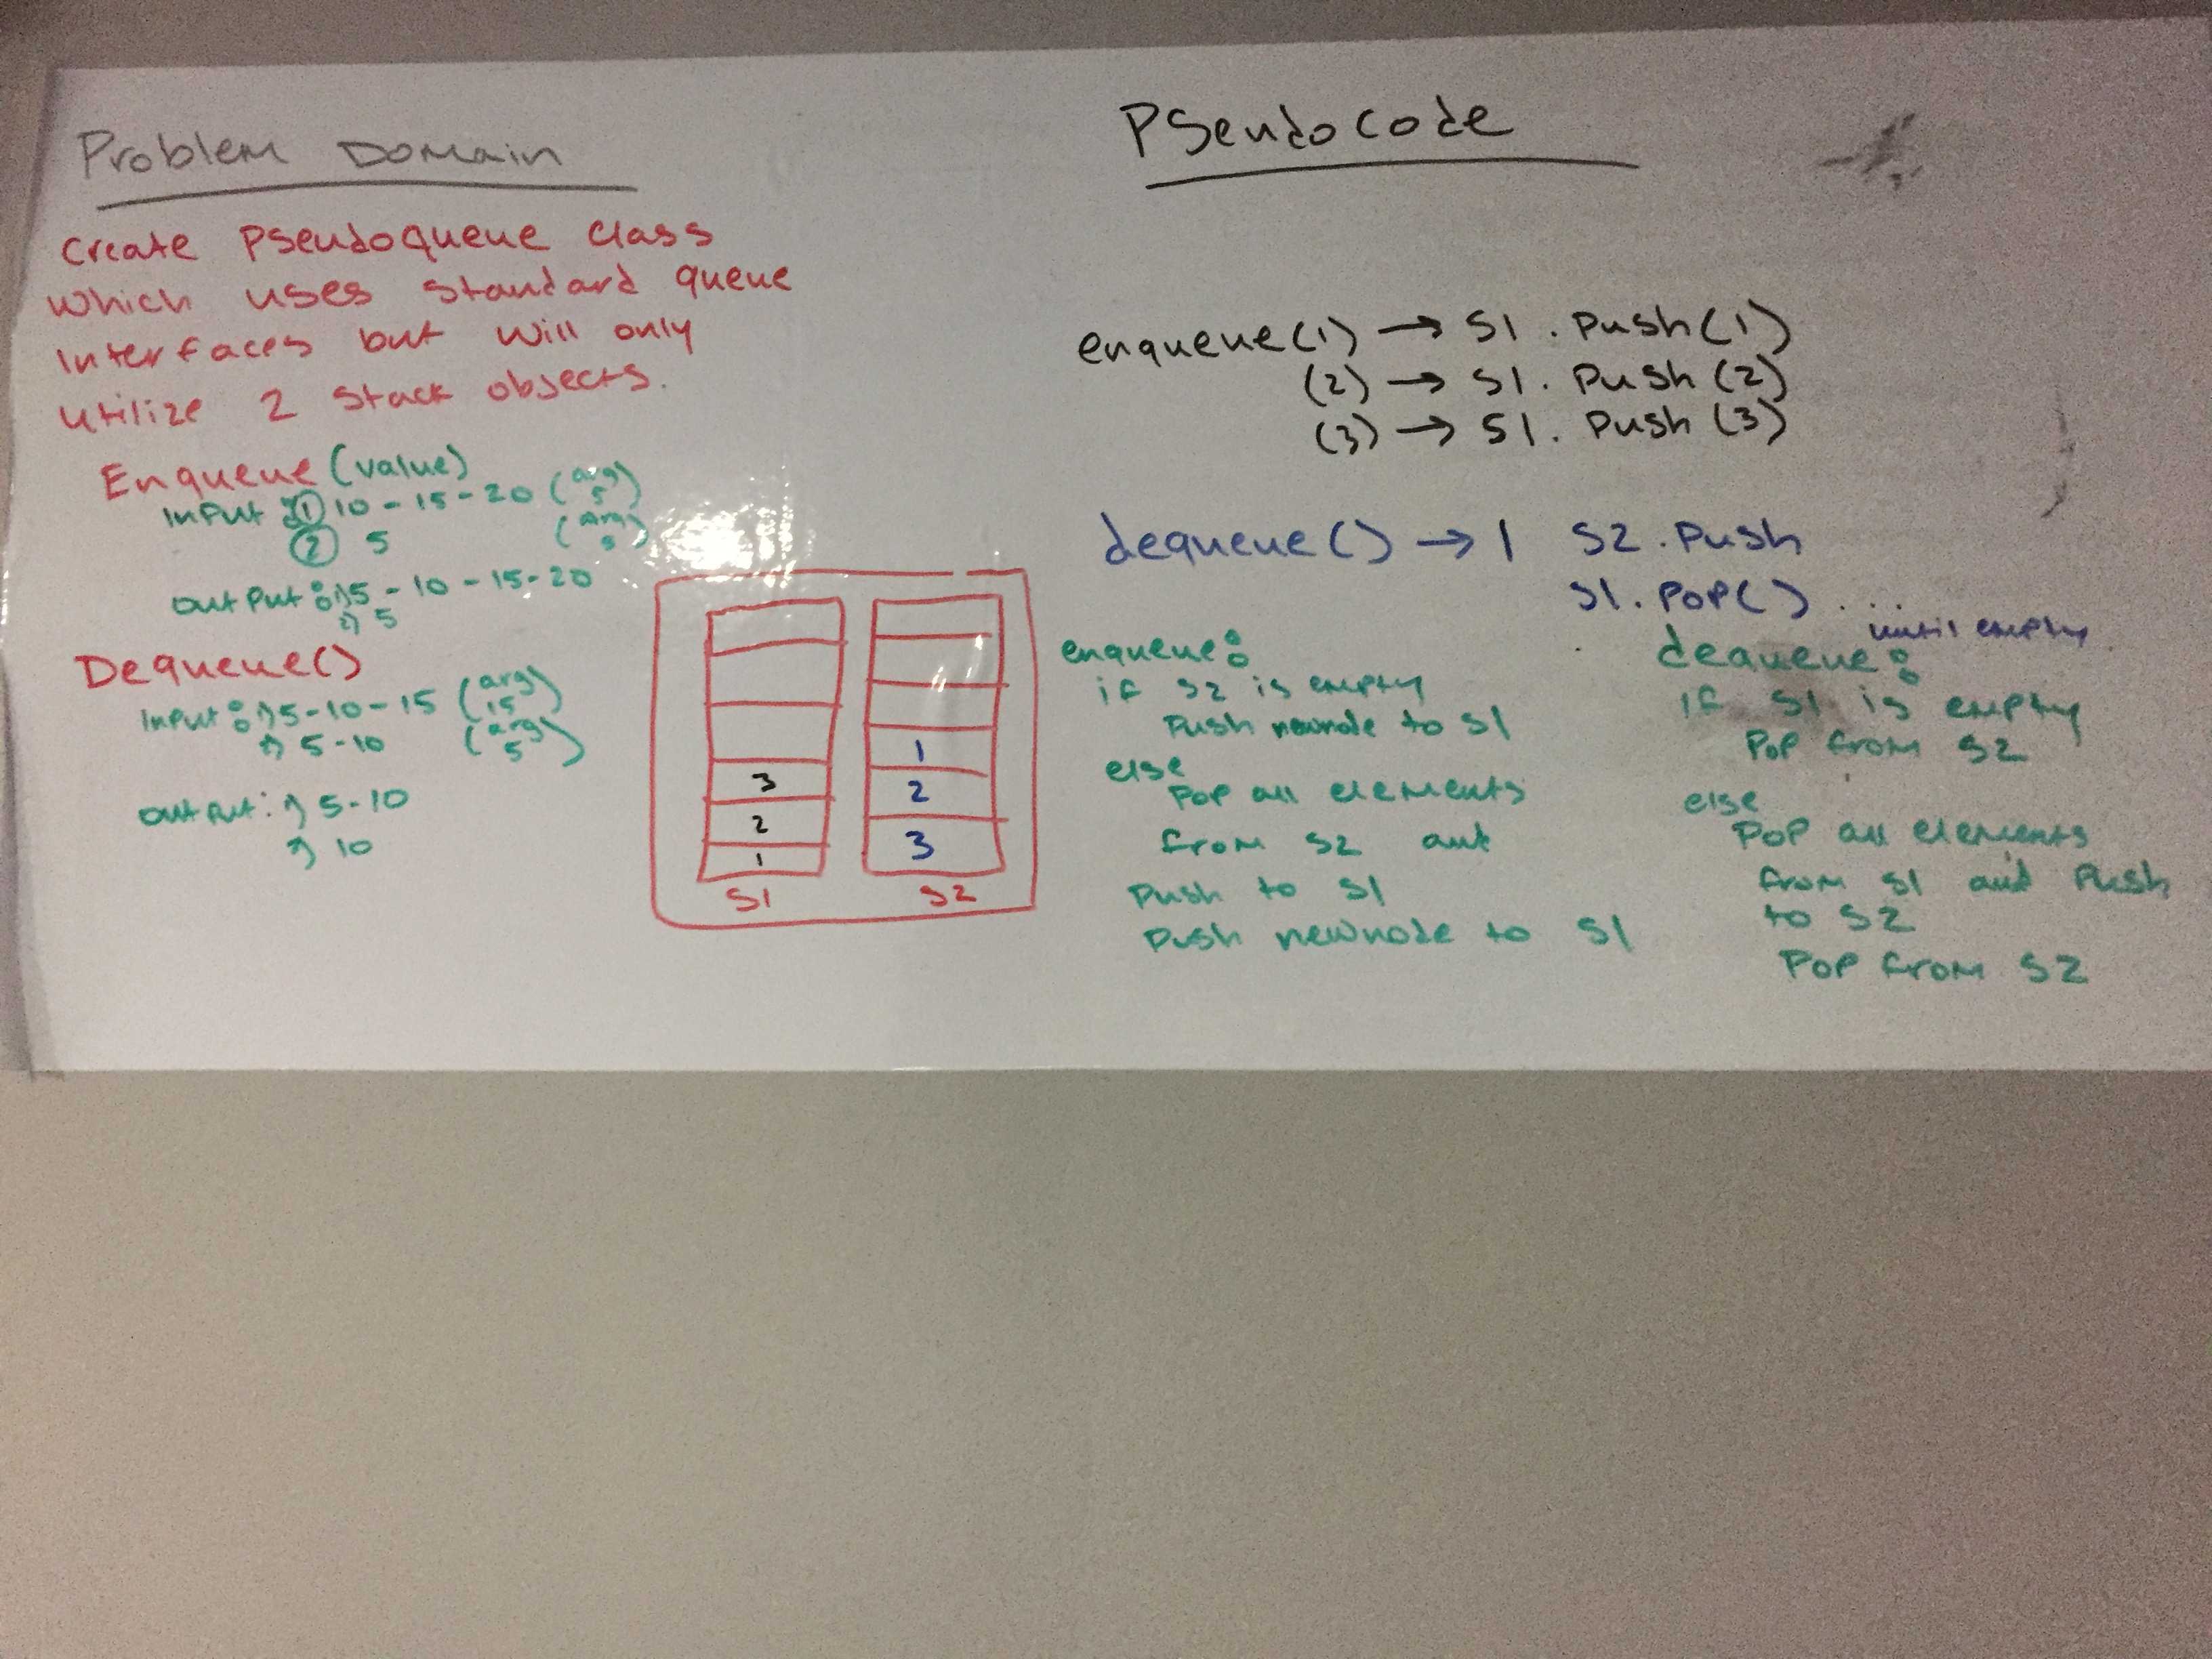 Problem Domain
Create Pseudoqueue Class
which uses standard queue
Interfaces but will only
utilize 2 stack objects.
Enqueue (value)
Input : 1 10 - 15 - 20 (arg 5)
2 5 (arg 5)
output : 1) 5 - 10 - 15 - 20
2) 5
Dequeue()
Input : 1) 5 - 10 - 15 (arg 15)
2) 5 - 10 (arg 5)
output : 1) 5 - 10
2) 10
3
2
1
S1
1
2
3
S2
Pseudocode
enqueue(1) → S1 . Push(1)
(2) → S1 . Push (2)
(3) → S1 . Push (3)
dequeue() → 1 S2 . Push
S1 . POP() ...
until empty
enqueue :
if S2 is empty
Push newnode to S1
else
Pop all elements
from S2 and
Push to S1
Push newnode to S1
dequeue :
if S1 is empty
Pop from S2
else
Pop all elements
from S1 and Push
to S2
Pop from S2